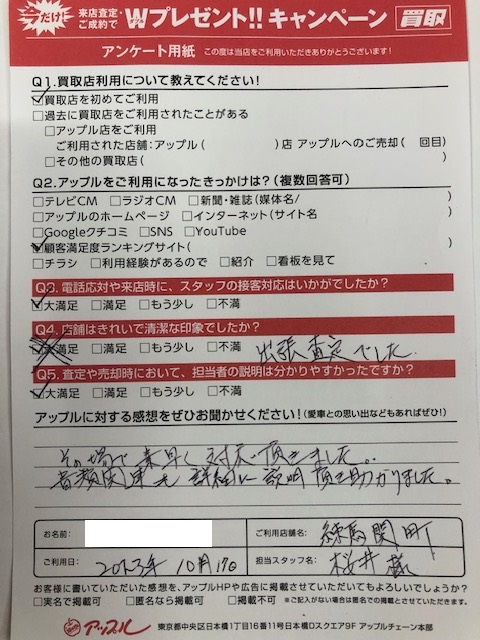 今だけ! 来店査定・ご成約で Wプレゼント!! キャンペーン 買取
アンケート用紙 この度は当店をご利用いただきありがとうございます!
Q1.買取店利用について教えてください!
☑買取店を初めてご利用
□過去に買取店をご利用されたことがある
□アップル店をご利用
ご利用された店舗:アップル( )店 アップルへのご売却( 回目)
□その他の買取店( )
Q2.アップルをご利用になったきっかけは?(複数回答可)
□テレビCM □ラジオCM □新聞・雑誌(媒体名/ )
□アップルのホームページ □インターネット(サイト名 )
□Googleクチコミ □SNS □YouTube
☑顧客満足度ランキングサイト( )
□チラシ □利用経験があるので □紹介 □看板を見て
Q3.電話応対や来店時に、スタッフの接客対応はいかがでしたか?
☑大満足 □満足 □もう少し □不満
Q4.店舗はきれいで清潔な印象でしたか?
大満足 □満足 □もう少し □不満 出張査定でした
Q5.査定や売却時において、担当者の説明は分かりやすかったですか?
☑大満足 □満足 □もう少し □不満
アップルに対する感想をぜひお聞かせください!(愛車との思い出などもあればぜひ!)
その場で素早く対応頂きました。
書類関連も詳細に説明頂き助かりました。
お名前: ご利用店舗名: 練馬関町
ご利用日: 2023年10月17日 担当スタッフ名: 桜井様
お客様に書いていただいた感想を、アップルHPや広告に掲載させていただいてもよろしいでしょうか?
□実名で掲載可 □匿名なら掲載可 □掲載不可 ※ご記入がない場合は匿名での掲載とさせていただきます。
アップル 東京都中央区日本橋1丁目16番11号日本橋Dスクエア9F アップルチェーン本部